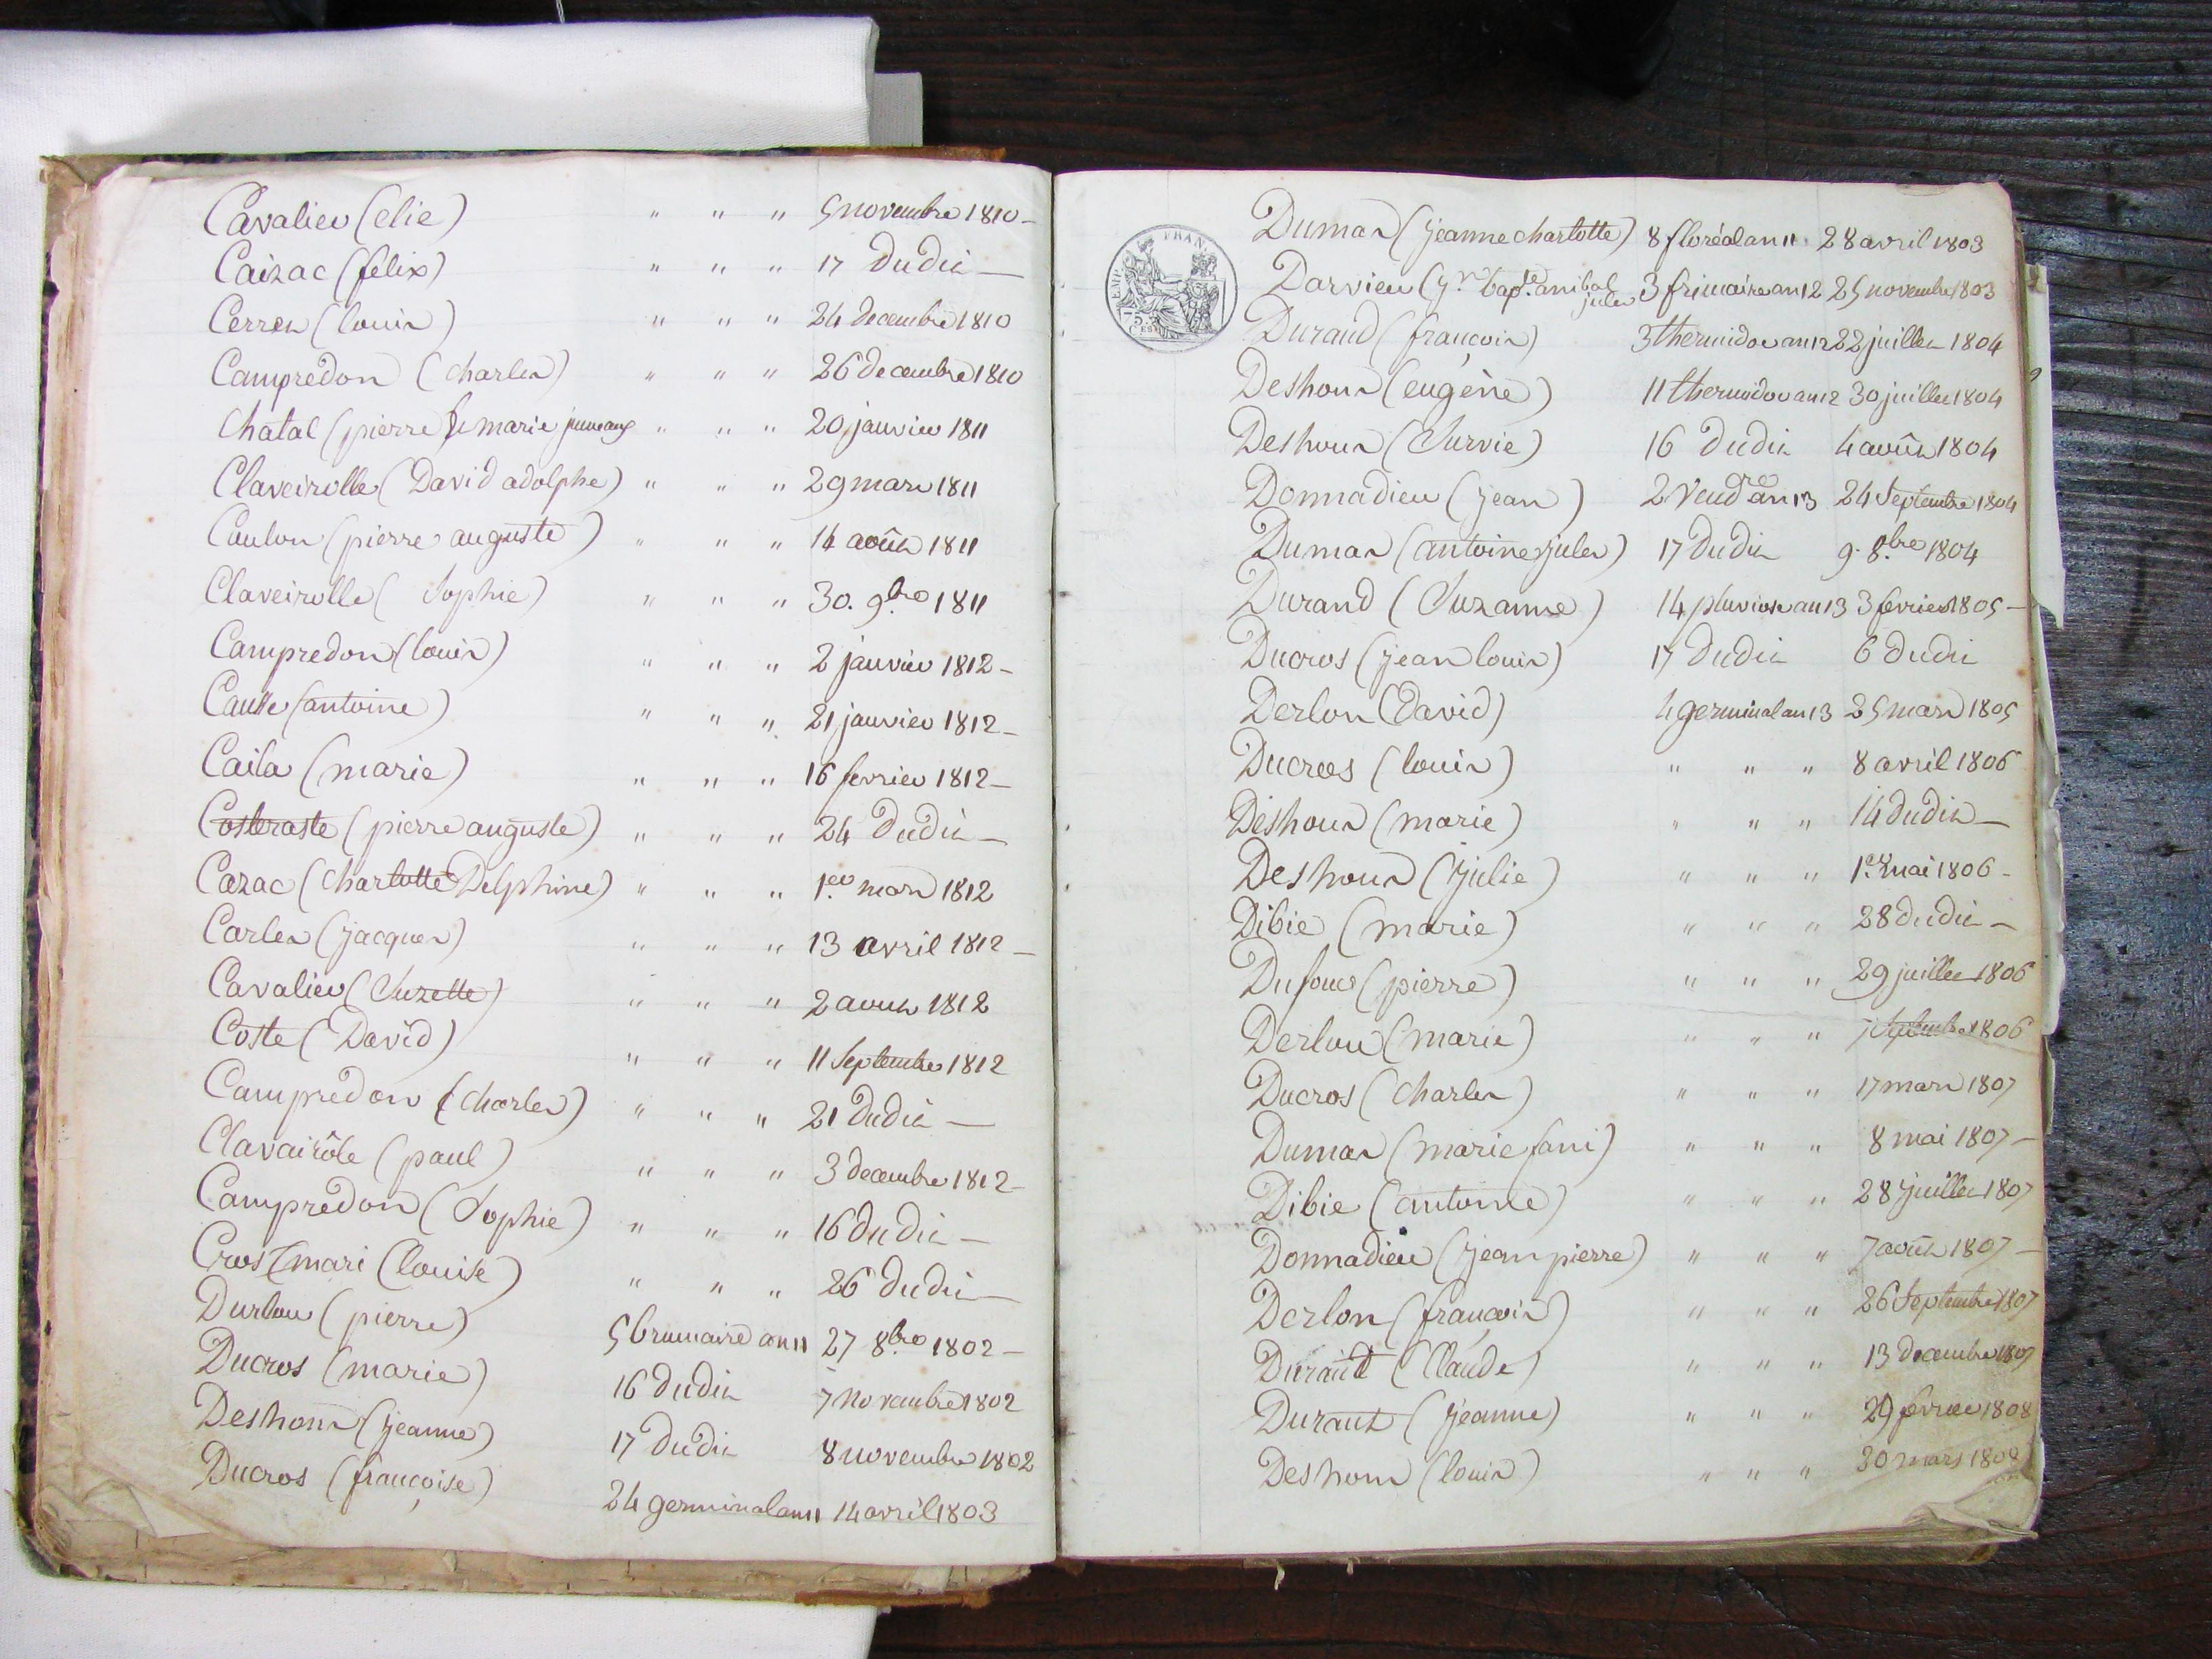 Cavalier (elie) " " " 5 novembre 1810 –
Caizac (felix) " " " 17 dudit —
Cerret (louis) " " " 24 decembre 1810
Campredon (charles) " " " 26 decembre 1810
Chatal (pierre & marie jumeaux " " " 20 janvier 1811
Claveirolle (David adolphe) " " " 29 mars 1811
Caulon (pierre auguste) " " " 14 août 1811
Claveirolle (Sophie) " " " 30. 9bre 1811
Campredon (louis) " " " 2 janvier 1812 –
Causse (antoine) " " " 21 janvier 1812 –
Caila (marie) " " " 16 fevrier 1812 –
Costeraste (pierre auguste) " " " 24 dudit —
Cazac (charlotte Delphine) " " " 1.er mars 1812
Carles (jacques) " " " 13 avril 1812 –
Cavalier (Suzette) " " " 2 aout 1812
Coste (David) " " " 11 Septembre 1812
Campredon (charles) " " " 21 dudit —
Clavairôle (paul) " " " 3 decembre 1812 –
Campredon (Sophie) " " " 16 dudit —
Cros (mari (louise) " " " 26 dudit —
Durlou (pierre) 5 brumaire an 11 27 8bre 1802 –
Ducros (marie) 16 dudit 7 novembre 1802
Deshons (jeanne) 17 dudit 8 novembre 1802
Ducros (françoise) 24 germinal an 11 14 avril 1803
TIMB. FRAN.
Dumas (jeanne charlotte) 8 floréal an 11 28 avril 1803
Darvieu (jn bapte. anibal
jules 3 frimaire an 12 25 novembre 1803
75 C.ES
Durand (françois) 3 thermidor an 12 22 juillet 1804
Deshons (eugène) 11 thermidor an 12 30 juillet 1804
Deshons (Survie) 16 dudit 4 août 1804
Donnadieu (jean) 2 Vendre an 13 24 Septembre 1804
Dumas (antoine jules) 17 dudit 9. 8.bre 1804
Durand (Suzanne) 14 pluviose an 13 3 fevrier 1805 –
Ducros (jean louis) 17 dudit 6 dudit
Derlon (David) 4 germinal an 13 25 mars 1805
Ducros (louis) " " " 8 avril 1806
Deshons (marie) " " " 14 dudit —
Deshons (julie) " " " 1.er mai 1806 –
Dibie (marie) " " " 28 dudit –
Dufour (pierre) " " " 29 juillet 1806
Derlou (marie) " " " 7 Septembre 1806
Ducros (charles) " " " 17 mars 1807
Dumas (marie fani) " " " 8 mai 1807 –
Dibie (antoine) " " " 28 juillet 1807
Donnadieu (jean pierre) " " " 7 août 1807 –
Derlon (françois) " " " 26 Septembre 1807
Durant (Claude) " " " 13 decembre 1807
Durant (jeanne) " " " 29 fevrier 1808
Deshons (louis) " " " 30 mars 1808